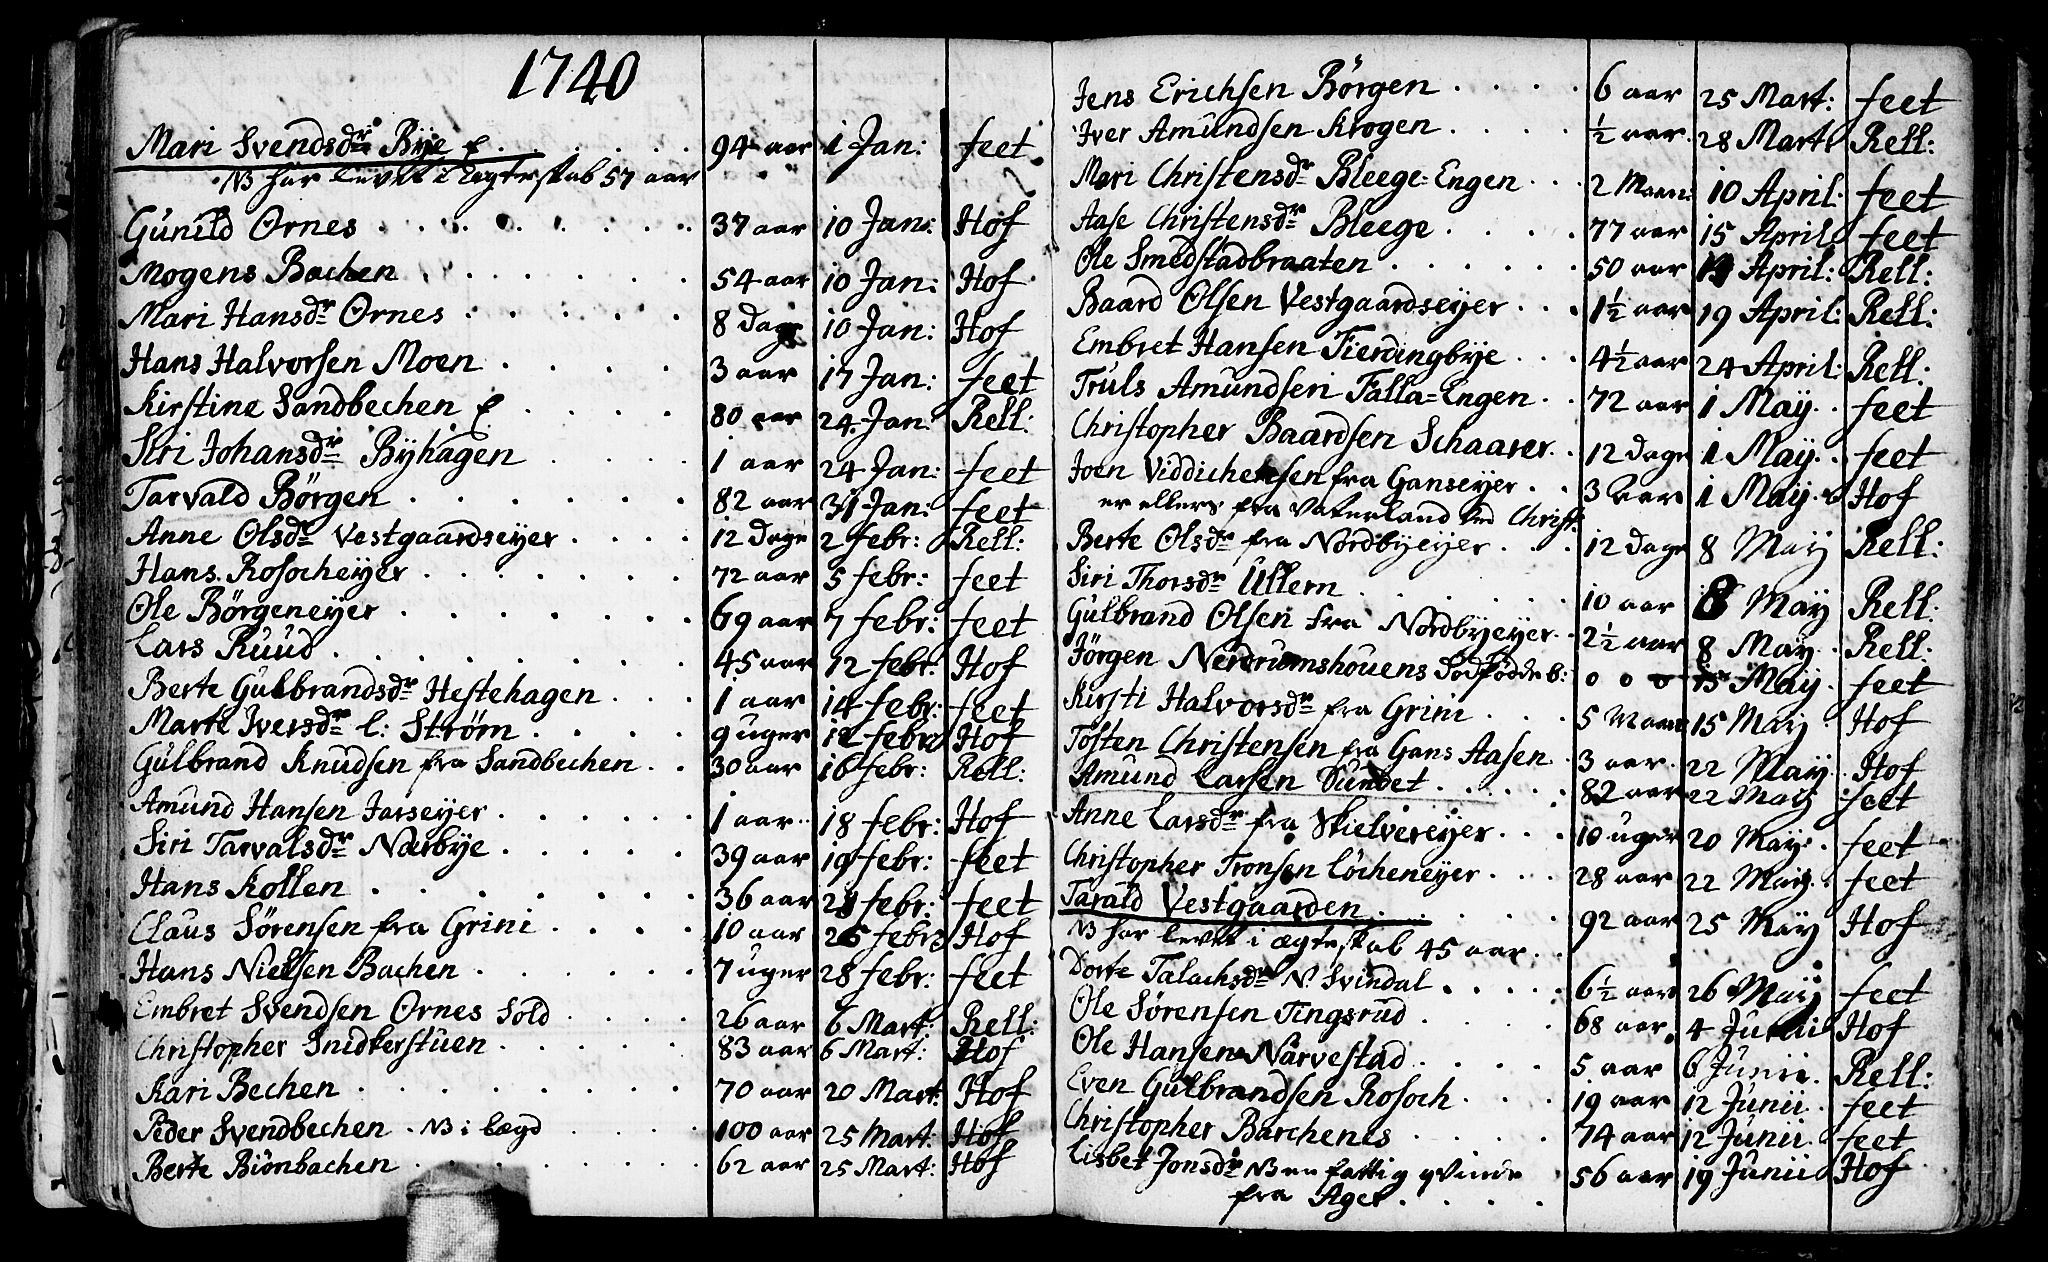 1740
Mari Svendsdr Bÿe f. 94 aar 1 Jan: feet
NB har levet i Ægteskab 57 aar
Gunild Ornes 37 aar 10 Jan: Hof
Mogens Bachen 54 aar 10 Jan: Hof
Mari Hansdr Ornes 8 Dage 10 Jan: Hof
Hans Halvorsen Moen 3 aar 17 Jan: feet
Kirstine Sandbechen f 80 aar 24 Jan: Rell:
Siri Johansdr Bÿhagen 1 aar 24 Jan: feet
Tarvald Börgen 82 aar 31 Jan: feet
Anne Olsdr Vestgaardseÿer 12 Dage 2 febr: Rell:
Hans Rosocheÿer 72 aar 5 febr: feet
Ole Börgeneÿer 69 aar 7 febr: feet
Lars Ruud 45 aar 12 febr: Hof
Berte Gulbrandsdr Hestehagen 1 aar 14 febr: feet
Marte Iversdr l: Strøm 9 uger 12 febr Hof
Gulbrand Knudsen fra Sandbechen 30 aar 16 febr: Rell:
Amund Hansen Jarseÿer 1 aar 18 febr: Hof
Siri Tarvalsdr Narbÿe 39 aar 19 febr: feet
Hans Kollen 36 aar febr: feet
Claus Sörensen fra Grini 10 aar 26 febr Hof
Hans Nielsen Bachen 7 uger 28 febr: feet
Embret Svendsen Ornes Sold 26 aar 6 Mart: Rell:
Christopher Snidkerstuen 83 aar 6 Mart: Hof
Kari Bechen 70 aar 20 Mart: Hof
Peder Svendbechen NB i lægd 100 aar 25 Mart: Hof
Berte Biönbachen 62 aar 25 Mart: Hof
Jens Erichsen Börgen 6 aar 25 Mart: feet
Iver Amundsen Krogen ½ aar 28 Mart: Rell:
Mari Christensdr Bleege=Engen 2 Maan: 10 April: feet
Aase Christensdr Bleege 77 aar 15 April: feet
Ole Smedstadbraaten 50 aar April: Rell:
Baard Olsen Vestgaardseÿer 1½ aar 19 April: Rell:
Embret Hansen Fierdingbÿe 4½ aar 24 April: Rell:
Truls Amundsen Falla=Engen 72 aar 1 Maÿ feet
Christopher Baardsen Schaarer 12 Dage 1 Maÿ feet
Joen Viddichensen fra Ganseÿer 3 aar 1 Maÿ Hof
er ellers fra Vaterland ved Christ:
Berte Olsdr fra Nordbÿeÿer 12 Dage 8 Maÿ Rell:
Siri Thorsdr Ullern 10 aar 8 Maÿ Rell:
Gulbrand Olsen fra Nordbÿeÿer 2½ aar 8 Maÿ Rell:
Jörgen Nerdrumshouens Dödfödde B: 0 0 0 15 Maÿ feet
Kirsti Halvorsdr fra Grini 5 Maan 15 Maÿ Hof
Tosten Christensen fra Gans Aasen 3 aar 22 Maÿ Hof
Amund Larsen Sundet 82 aar 22 Maÿ feet
Anne Larsdr fra Skielvereÿer 10 uger 20 Maÿ feet
Christopher Tronsen Löcheneÿer 28 aar 22 Maÿ feet
Tarald Vestgaarden 92 aar 25 Maÿ Hof
NB har levet i ægteskab 45 aar
Dorte Talachsdr N. Svindal 6½ aar 26 Maÿ feet
Ole Sörensen Tingsrud 68 aar 4 Junii Hof
Ole Hansen Narvestad 5 aar 6 Junii Rell:
Even Gulbrandsen Rosoch 19 aar 12 Junii feet
Christopher Barchenes 74 aar 12 Junii feet
Lisbet Jonsdr NB en fattig qvinde 56 aar 19 Junii Hof
fra Ager